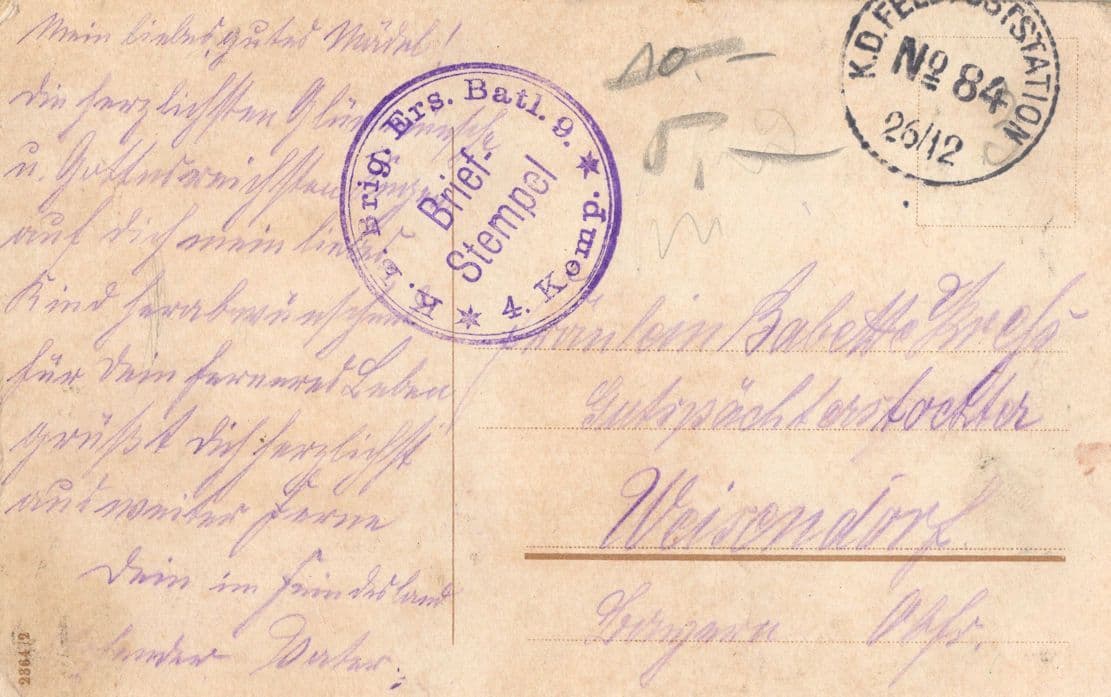 Mein liebes, gutes Mädel!
die herzlichsten Glückwünsche
u. Gottes reichsten Segen
auf dich mein liebes
Kind herabwünschend
für dein ferneres Leben
grüßt dich herzlichst
aus weiter Ferne
dein im Feindesland
Vater.
K. b. Brig. Ers. Batl. 9. 4. Komp.
Brief-
Stempel
10.-
5,-
K.D. FELDPOSTSTATION
No 84
26/12
Fräulein Babette
Gutspächterstochter
Weisendorf.
Bayern Obfr.
2364/2